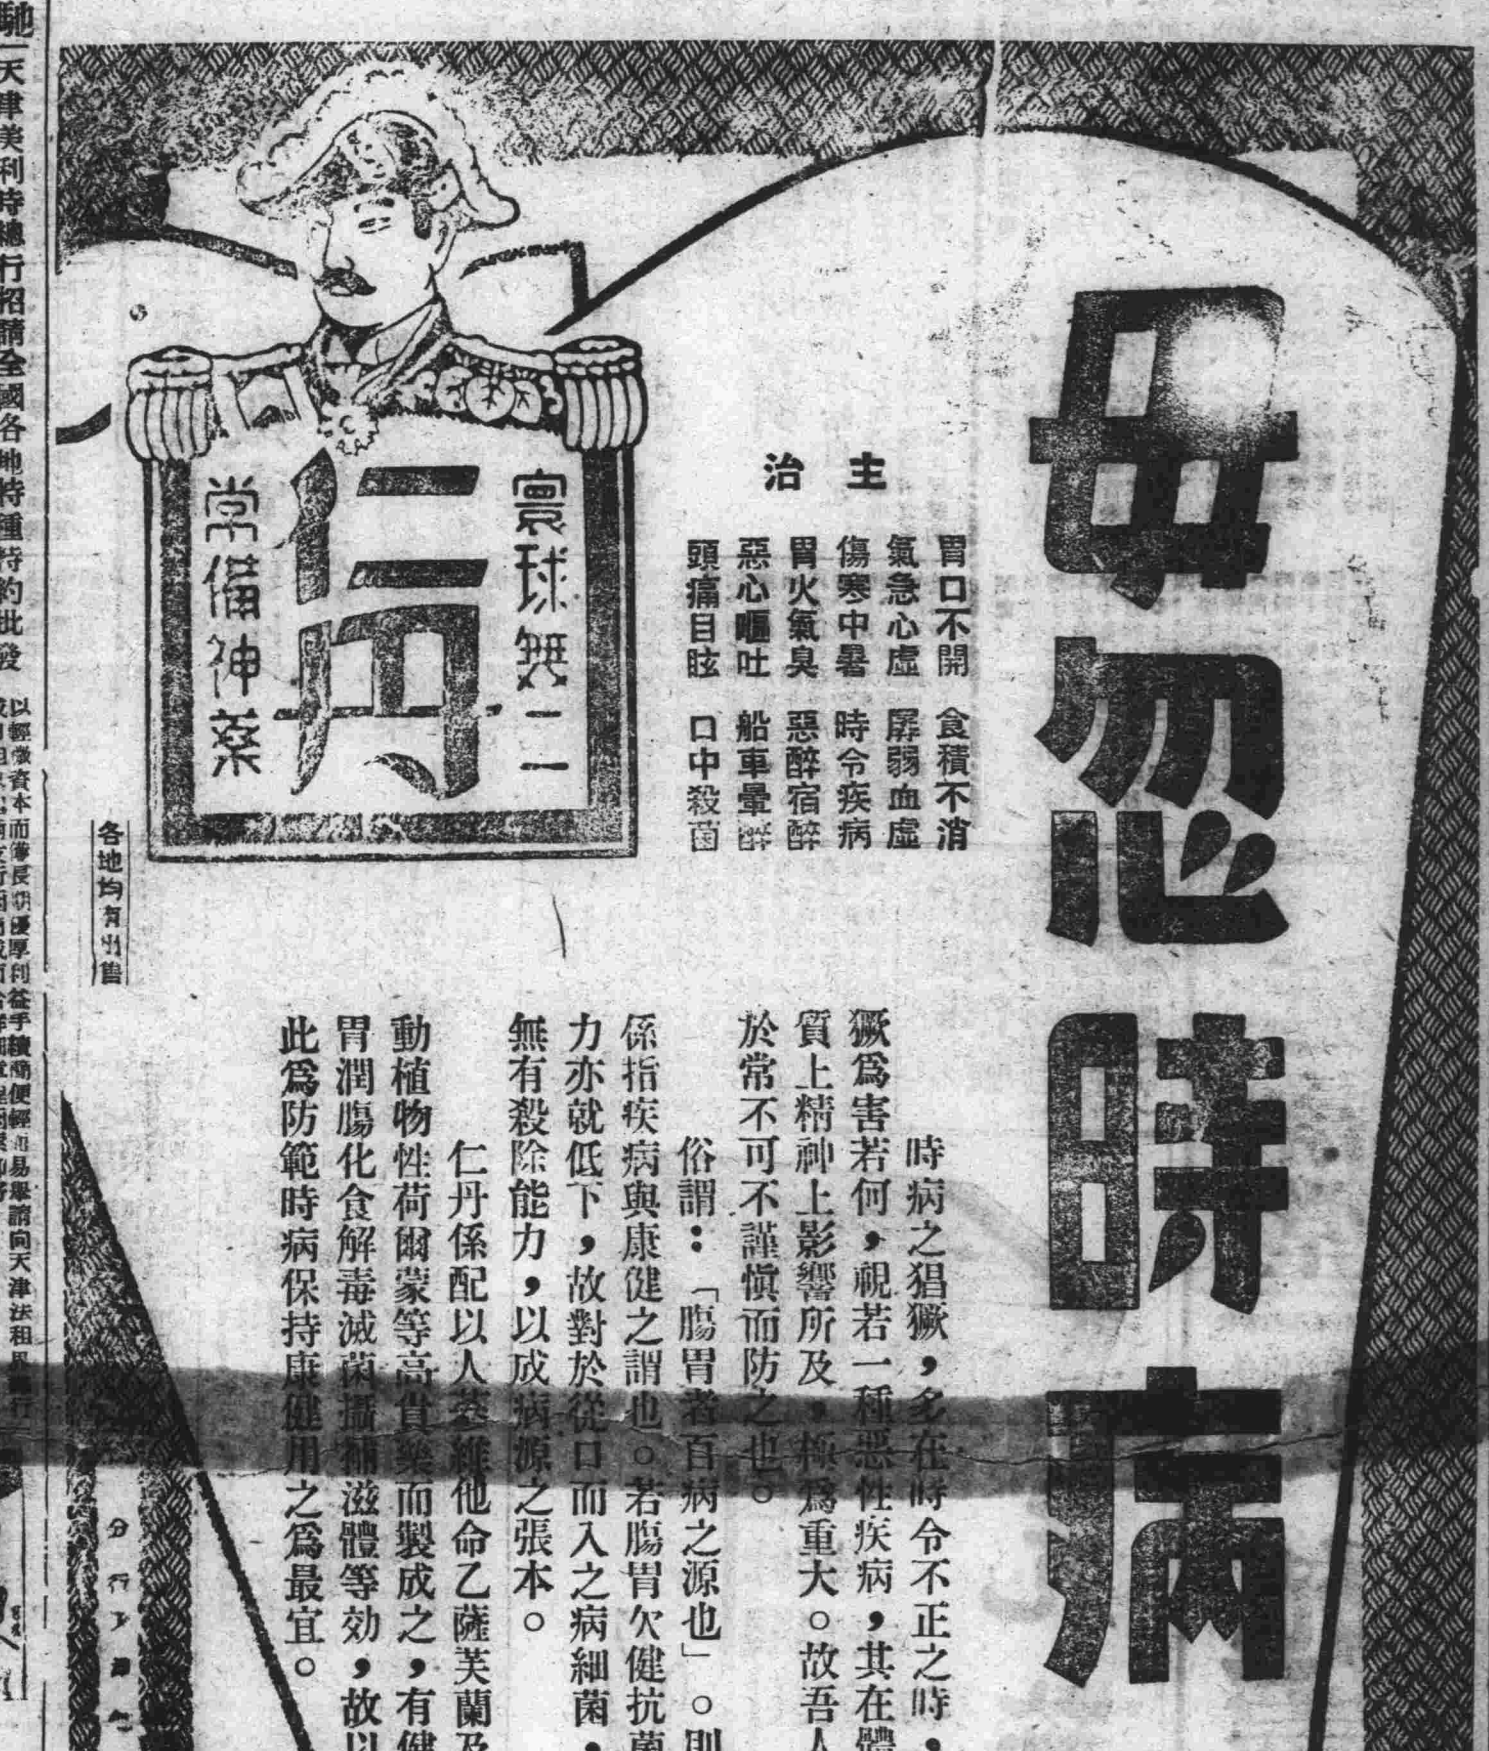 毋忽時病
主治
胃口不開 食積不消
氣急心虛 孱弱血虛
傷寒中暑 時令疾病
胃火氣臭 惡醉宿醉
惡心嘔吐 船車暈醉
頭痛目眩 口中殺菌
時病之猖獗，多在時令不正之時，
獗爲害若何，視若一種惡性疾病，其在體
質上精神上影響所及，極爲重大。故吾人
於常不可不謹愼而防之也。
俗謂：「腸胃者百病之源也」。則
係指疾病與康健之謂也。若腸胃欠健抗菌
力亦就低下，故對於從口而入之病細菌，
無有殺除能力，以成病源之張本。
仁丹係配以人蔘維他命乙薩芙蘭及
動植物性荷爾蒙等高貴藥而製成之，有健
胃潤腸化食解毒滅菌攝補滋體等効，故以
此爲防範時病保持康健用之爲最宜。
寰球無二
仁丹
常備神藥
各地均有出售
分行
馳 天津美利時總行招請全國各地特種特約批發
以輕微資本而獲長期優厚利益手續簡便輕而易舉請向天津法租界